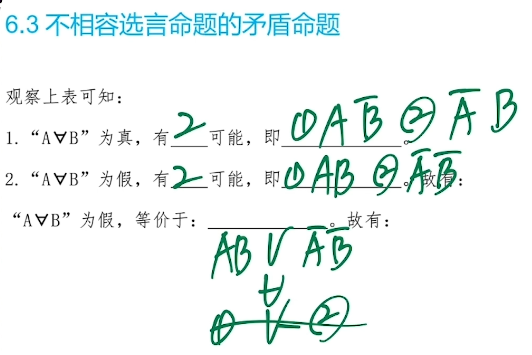 6.3 不相容选言命题的矛盾命题
观察上表可知：
1. “A∀B”为真，有 2 可能，即 ①AB̅ ②A̅B 。
2. “A∀B”为假，有 2 可能，即 ①AB ②A̅B̅ 。故有：
“A∀B”为假，等价于：________。故有：
AB ∨ A̅B̅
∀
① ∨ ②